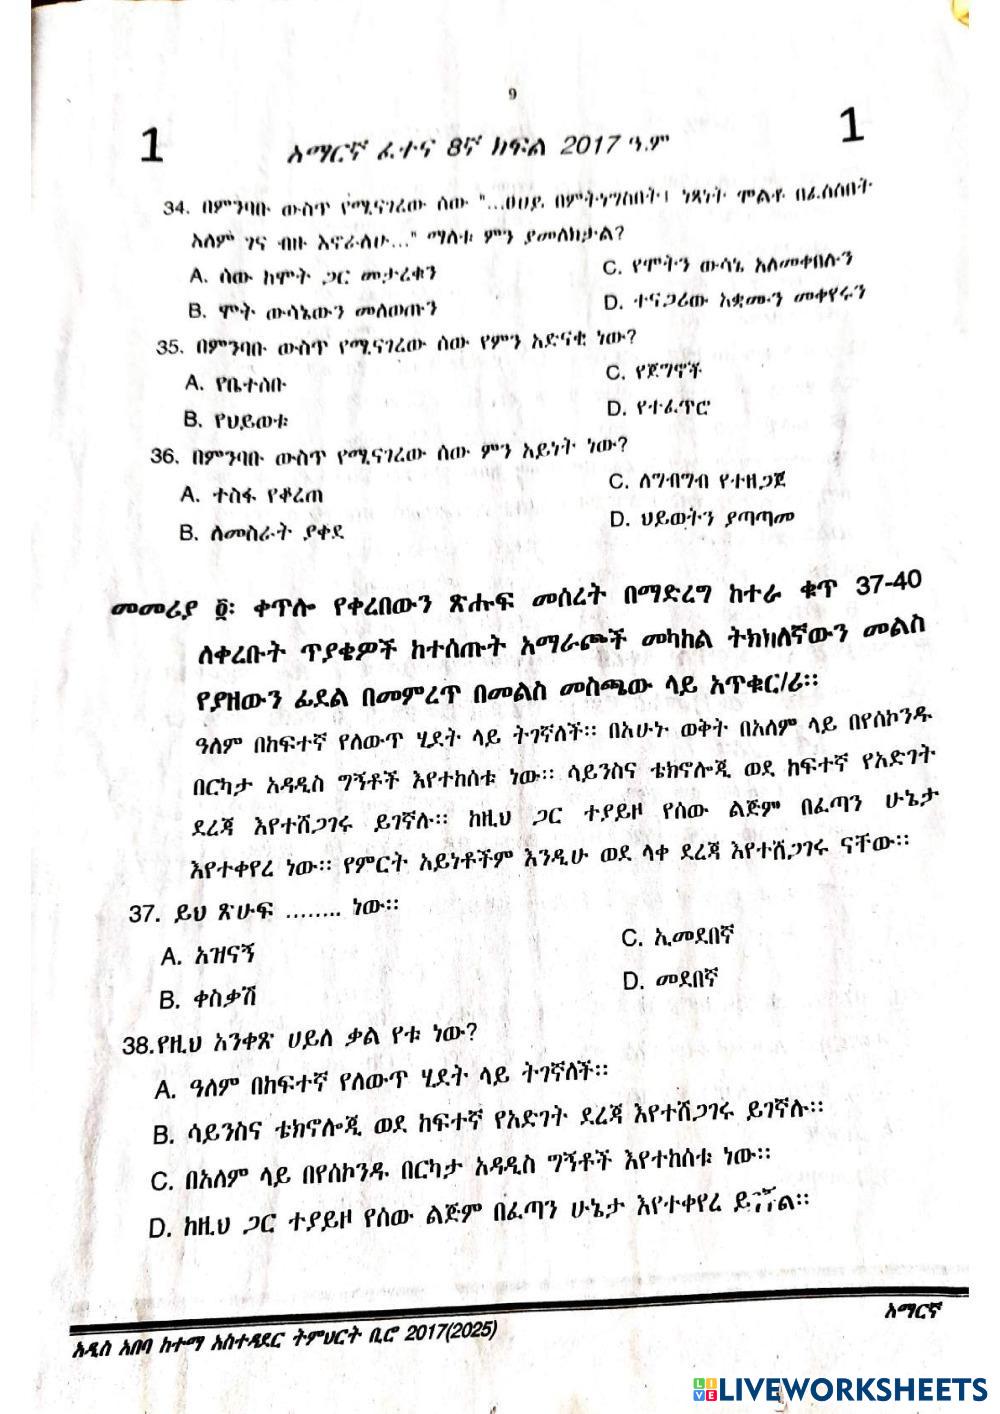 9
1 አማርኛ ፈተና 8ኛ ክፍል 2017 ዓ.ም 1
34. በምንባቡ ውስጥ የሚናገረው ሰው "...ፀሀይ በምትነግስበት፣ ነጻነት ሞልቶ በፈሰሰበት
አለም ገና ብዙ እኖራለሁ..." ማለቱ ምን ያመለክታል?
A. ሰው ከሞት ጋር መታረቁን
C. የሞትን ውሳኔ አለመቀበሉን
B. ሞት ውሳኔውን መለወጡን
D. ተናጋሪው አቋሙን መቀየሩን
35. በምንባቡ ውስጥ የሚናገረው ሰው የምን አድናቂ ነው?
A. የቤተሰቡ
C. የጀግኖች
B. የህይወቱ
D. የተፈጥሮ
36. በምንባቡ ውስጥ የሚናገረው ሰው ምን አይነት ነው?
A. ተስፋ የቆረጠ
C. ለግብግብ የተዘጋጀ
B. ለመስራት ያቀደ
D. ህይወትን ያጣጣመ
መመሪያ ፬፡ ቀጥሎ የቀረበውን ጽሑፍ መሰረት በማድረግ ከተራ ቁጥ 37-40
ለቀረቡት ጥያቄዎች ከተሰጡት አማራጮች መካከል ትክክለኛውን መልስ
የያዘውን ፊደል በመምረጥ በመልስ መስጫው ላይ አጥቁር/ሪ።
ዓለም በከፍተኛ የለውጥ ሂደት ላይ ትገኛለች። በአሁኑ ወቅት በአለም ላይ በየሰኮንዱ
በርካታ አዳዲስ ግኝቶች እየተከሰቱ ነው። ሳይንስና ቴክኖሎጂ ወደ ከፍተኛ የእድገት
ደረጃ እየተሸጋገሩ ይገኛሉ። ከዚህ ጋር ተያይዞ የሰው ልጅም በፈጣን ሁኔታ
እየተቀየረ ነው። የምርት አይነቶችም እንዲሁ ወደ ላቀ ደረጃ እየተሸጋገሩ ናቸው።
37. ይህ ጽሁፍ ........ ነው።
A. አዝናኝ
C. ኢመደበኛ
B. ቀስቃሽ
D. መደበኛ
38.የዚህ አንቀጽ ሀይለ ቃል የቱ ነው?
A. ዓለም በከፍተኛ የለውጥ ሂደት ላይ ትገኛለች።
B. ሳይንስና ቴክኖሎጂ ወደ ከፍተኛ የእድገት ደረጃ እየተሸጋገሩ ይገኛሉ።
C. በአለም ላይ በየሰኮንዱ በርካታ አዳዲስ ግኝቶች እየተከሰቱ ነው።
D. ከዚህ ጋር ተያይዞ የሰው ልጅም በፈጣን ሁኔታ እየተቀየረ ይገኛል።
አማርኛ
አዲስ አበባ ከተማ አስተዳደር ትምህርት ቢሮ 2017(2025)
LIVE LIVEWORKSHEETS